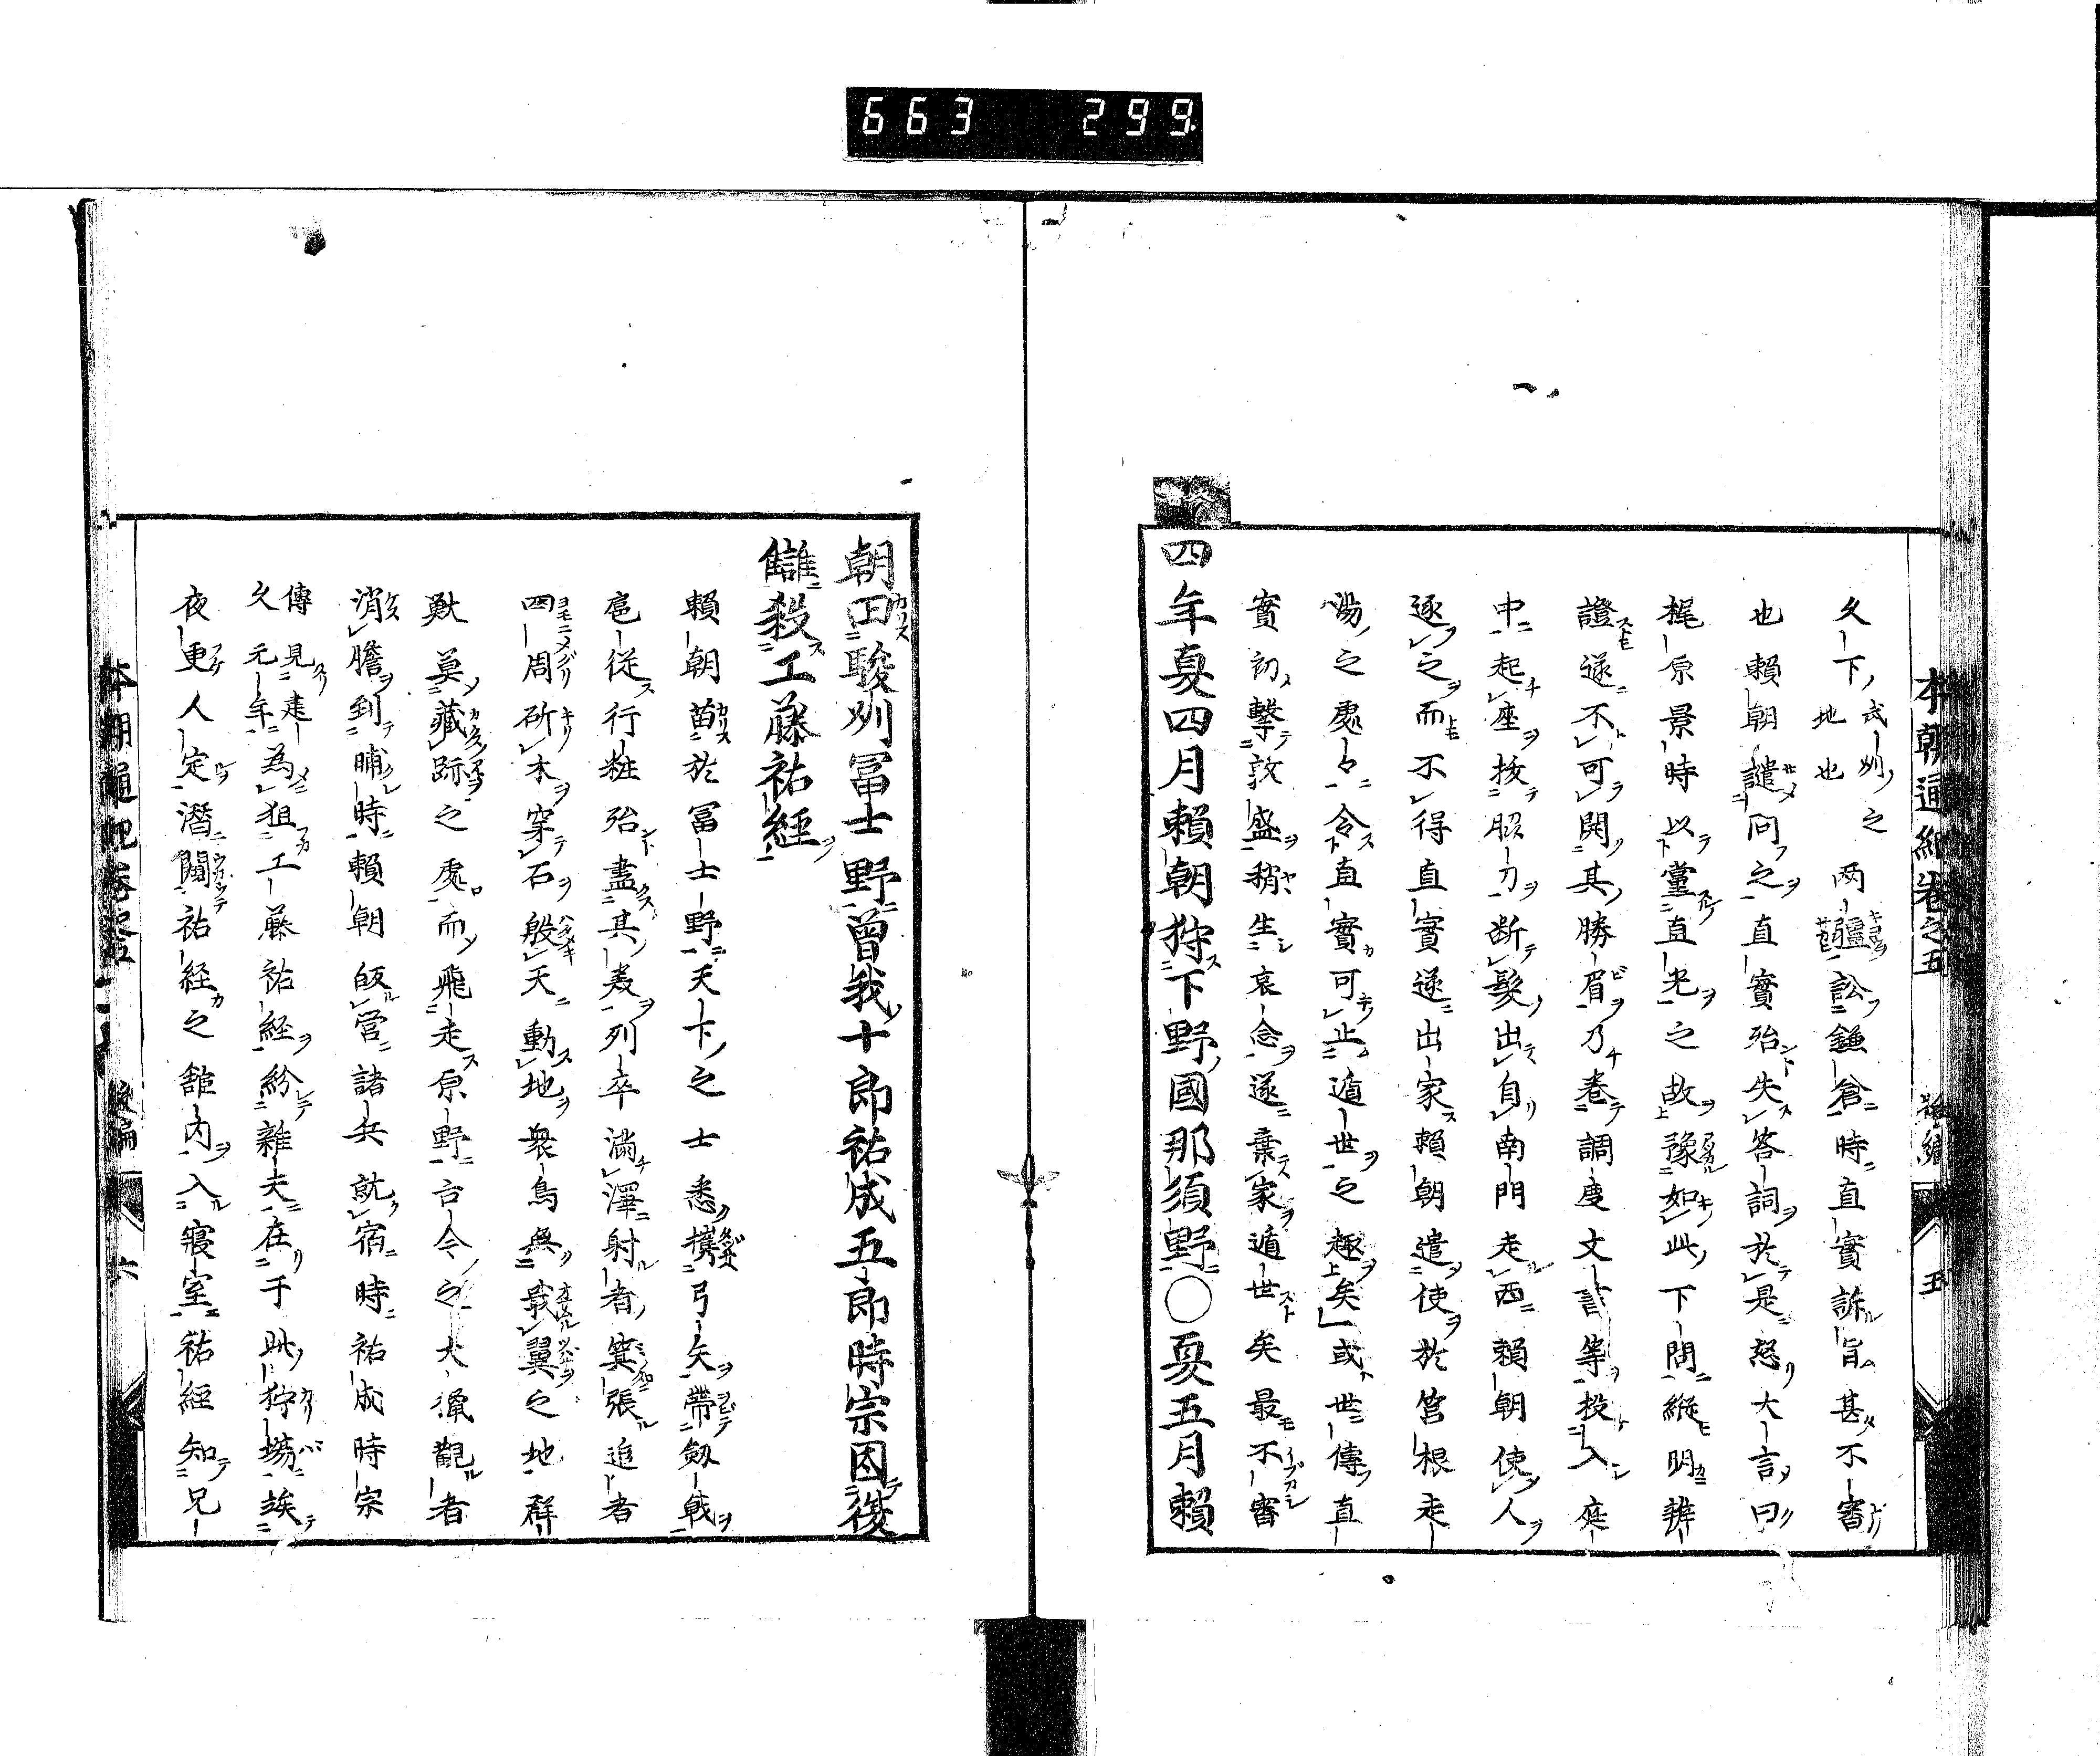 663 299
本朝通紀卷之五 後編 五
久下武州之地也兩疆訟鎌倉時直實訴旨甚不審
也賴朝譴問之直實殆失答詞於是怒大言曰
梶原景時以黨直光之故豫如此下問縱明辨
證遂不可開其勝眉乃卷調度文書等投入庭
中起座拔腰刀斷髮出自南門走西賴朝使人
逐之而不得直實遂出家賴朝遣使於筥根走
湯之處々令直實可止遁世之趣矣或世傳直
實初擊敦盛稍生哀念遂棄家遁世矣最不審
四年夏四月賴朝狩下野國那須野○夏五月賴
朝田駿州冨士野曾我十郎祐成五郎時宗因復
讎殺工藤祐經
賴朝苗於冨士野天下之士悉攜弓矢帶劔戟
扈從行粧殆盡其美列卒滿澤射者箕張追者
四周斫木穿石般天動地衆鳥無戢翼之地群
獸莫藏跡之處而飛走原野古今之大獵觀者
消膽到晡時賴朝皈營諸兵就宿時祐成時宗
傳見建久元年為狙工藤祐経紛雜夫在于此狩場俟
夜更人定潛闖祐経之舘內入寢室祐經知兄
本朝通紀卷之五 後編 六